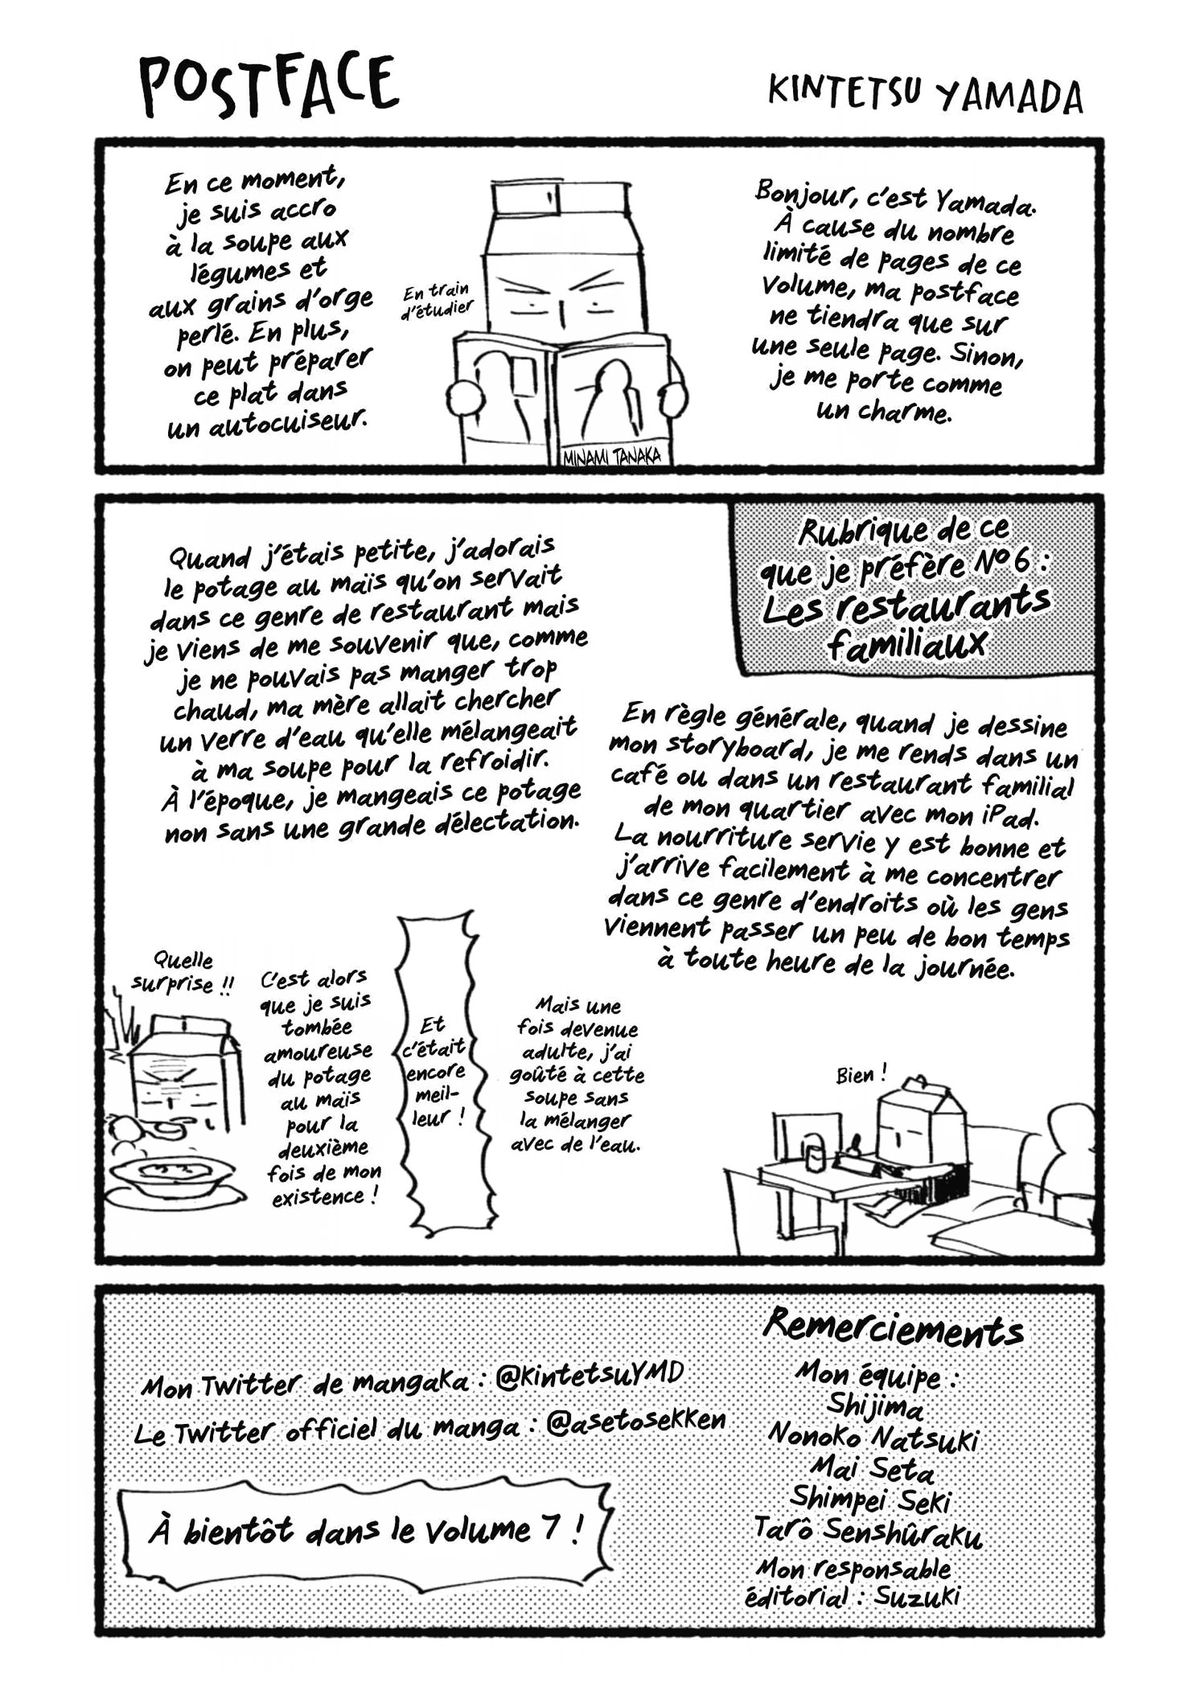 POSTFACE
KINTETSU YAMADA
Bonjour, c'est Yamada.
À cause du nombre
limité de pages de ce
volume, ma postface
ne tiendra que sur
une seule page. Sinon,
je me porte comme
un charme.
En train
d'étudier
MINAMI TANAKA
En ce moment,
je suis accro
à la soupe aux
légumes et
aux grains d'orge
perlé. En plus,
on peut préparer
ce plat dans
un autocuiseur.
Rubrique de ce
que je préfère N°6 :
Les restaurants
familiaux
En règle générale, quand je dessine
mon storyboard, je me rends dans un
café ou dans un restaurant familial
de mon quartier avec mon iPad.
La nourriture servie y est bonne et
j'arrive facilement à me concentrer
dans ce genre d'endroits où les gens
viennent passer un peu de bon temps
à toute heure de la journée.
Bien !
Quand j'étais petite, j'adorais
le potage au maïs qu'on servait
dans ce genre de restaurant mais
je viens de me souvenir que, comme
je ne pouvais pas manger trop
chaud, ma mère allait chercher
un verre d'eau qu'elle mélangeait
à ma soupe pour la refroidir.
À l'époque, je mangeais ce potage
non sans une grande délectation.
Mais une
fois devenue
adulte, j'ai
goûté à cette
soupe sans
la mélanger
avec de l'eau.
Et
c'était
encore
meil-
leur !
C'est alors
que je suis
tombée
amoureuse
du potage
au maïs
pour la
deuxième
fois de mon
existence !
Quelle
surprise !!
Remerciements
Mon équipe :
Shijima
Nonoko Natsuki
Mai Seta
Shimpei Seki
Tarô Senshûraku
Mon responsable
éditorial : Suzuki
Mon Twitter de mangaka : @kintetsuYMD
Le Twitter officiel du manga : @asetosekken
À bientôt dans le volume 7 !